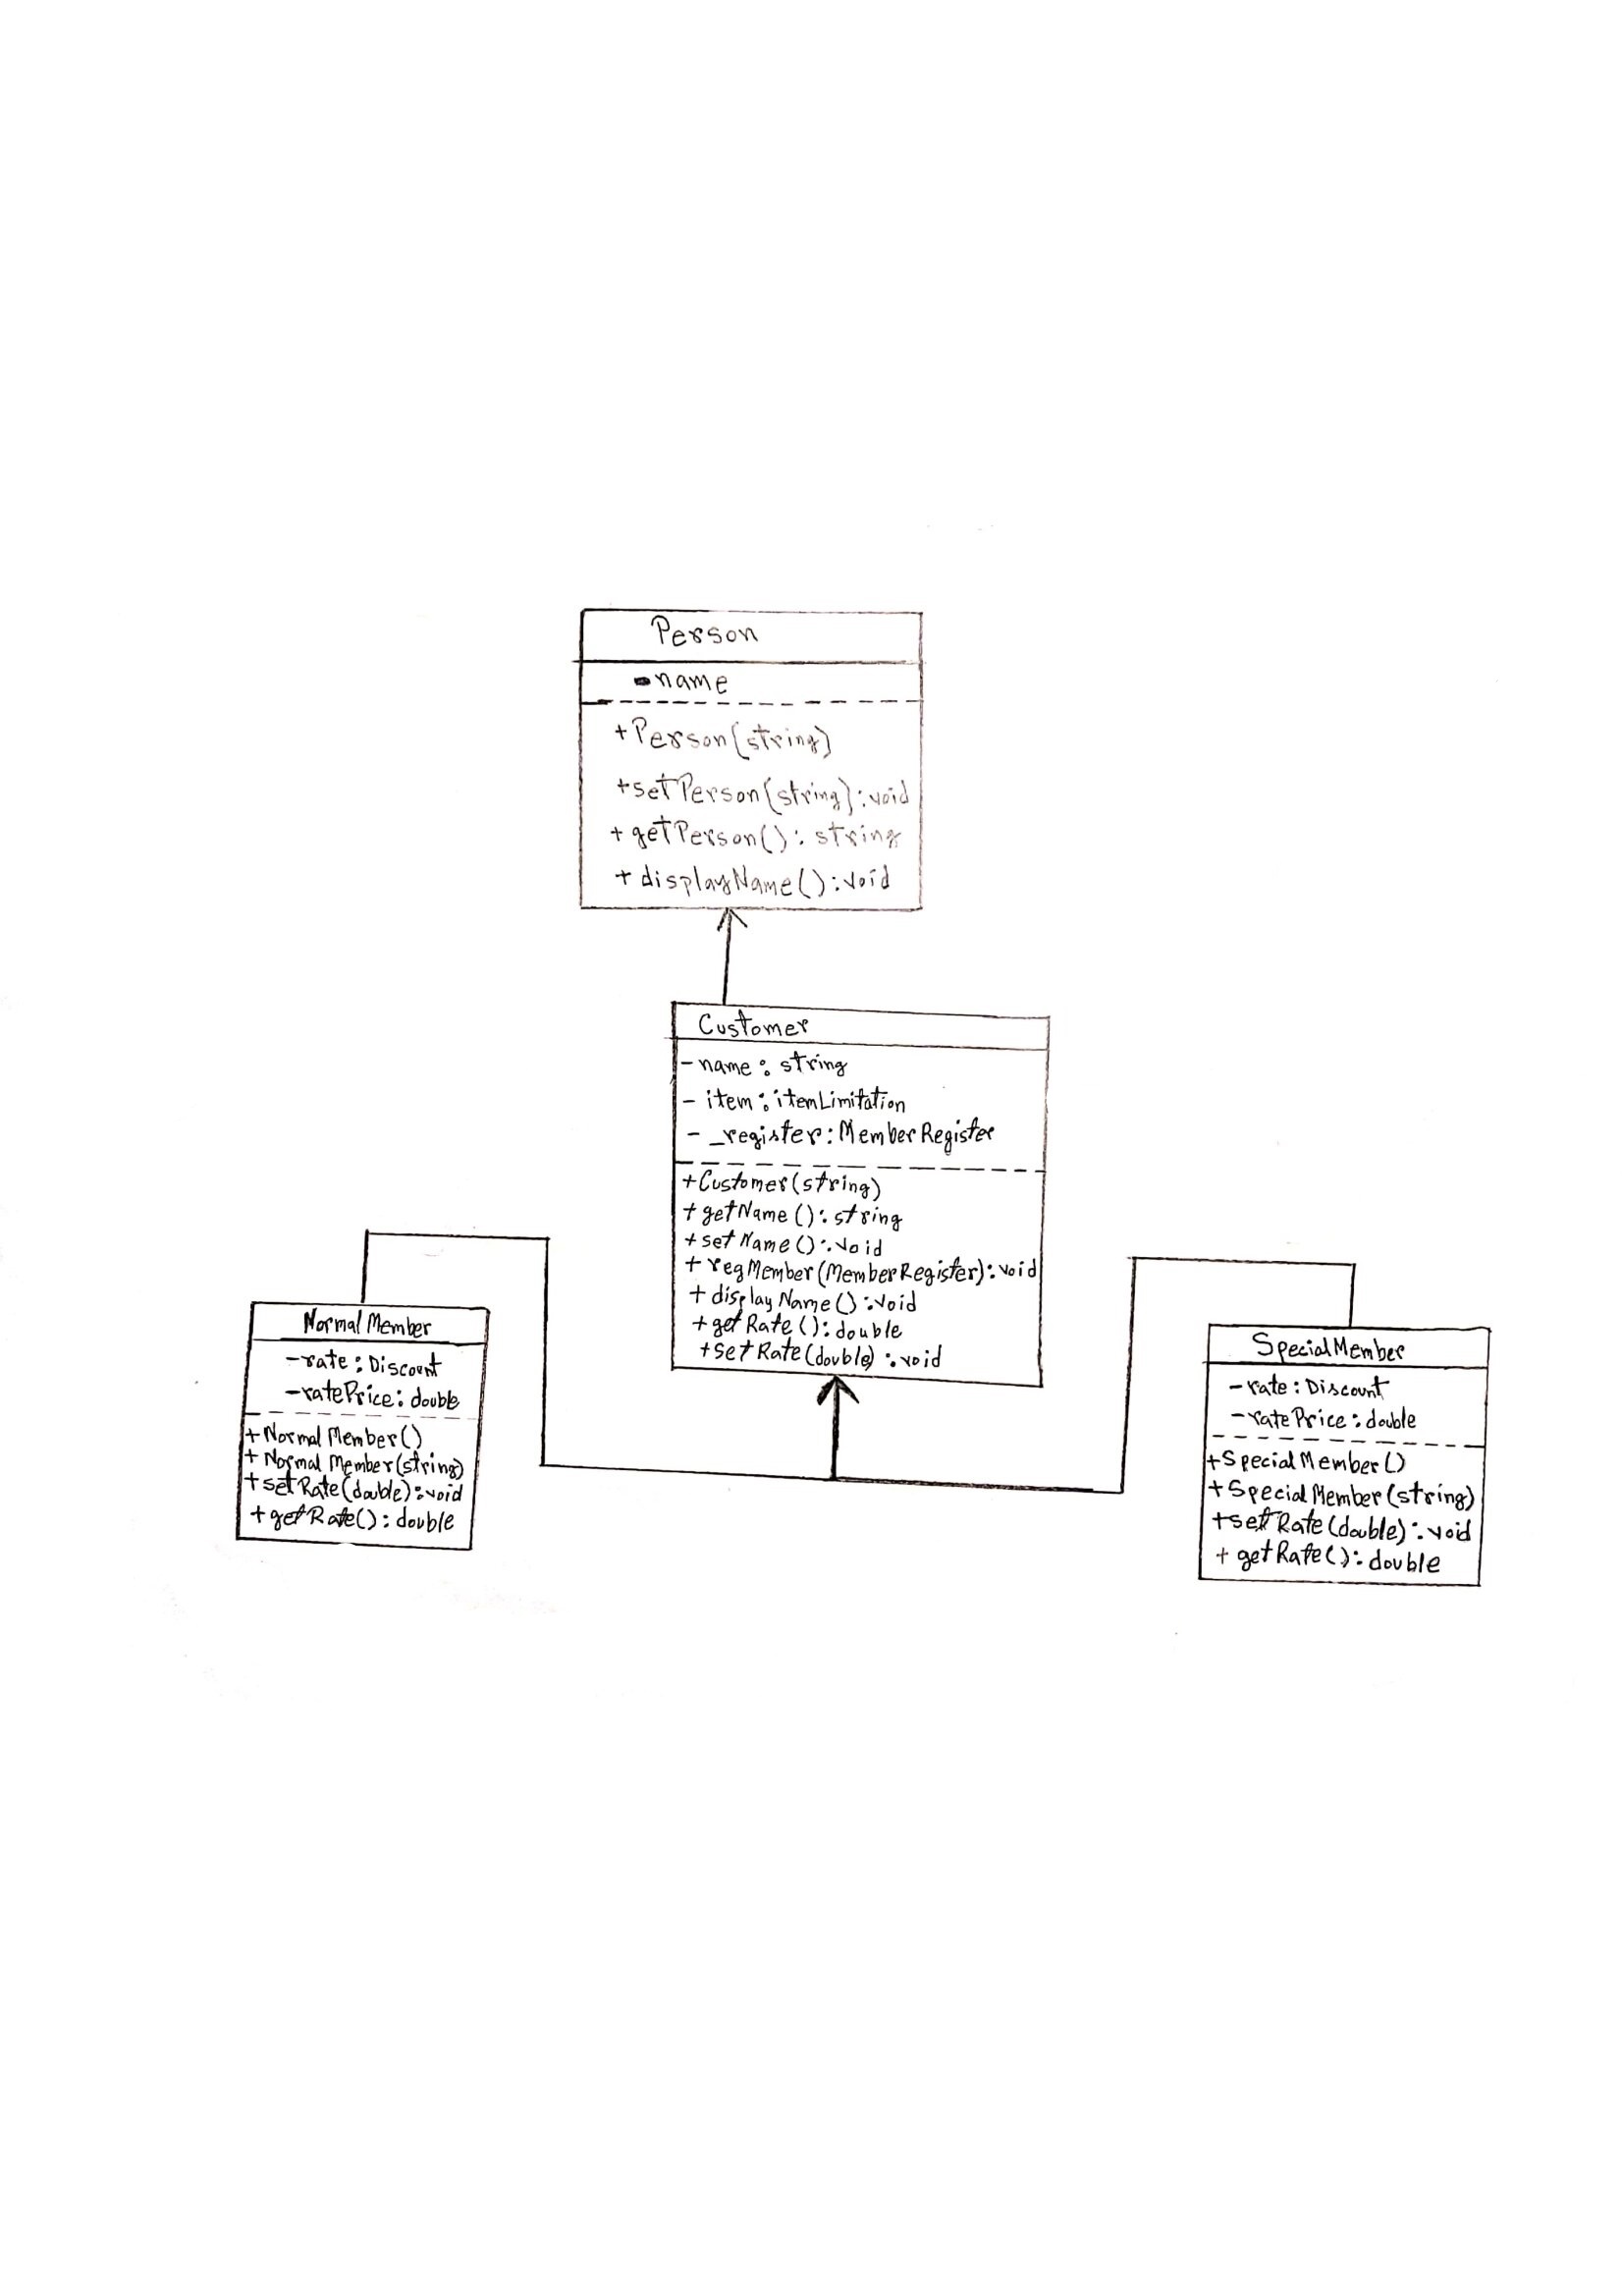 Person
-name
+Person(string)
+setPerson(string):void
+getPerson():string
+displayName():void
Customer
-name:string
-item:itemLimitation
-_register:MemberRegister
+Customer(string)
+getName():string
+setName():void
+regMember(MemberRegister):void
+displayName():void
+getRate():double
+setRate(double):void
NormalMember
-rate:Discount
-ratePrice:double
+NormalMember()
+NormalMember(string)
+setRate(double):void
+getRate():double
SpecialMember
-rate:Discount
-ratePrice:double
+SpecialMember()
+SpecialMember(string)
+setRate(double):void
+getRate():double